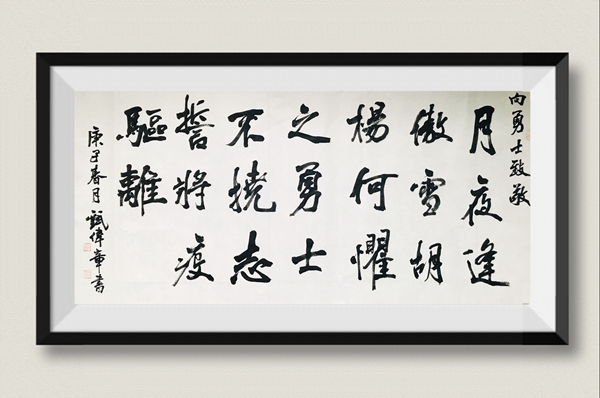 向勇士致敬
月夜逢
傲雪胡
楊何懼
之勇士
不撓志
誓將疫
驅離
庚子春月偉章書